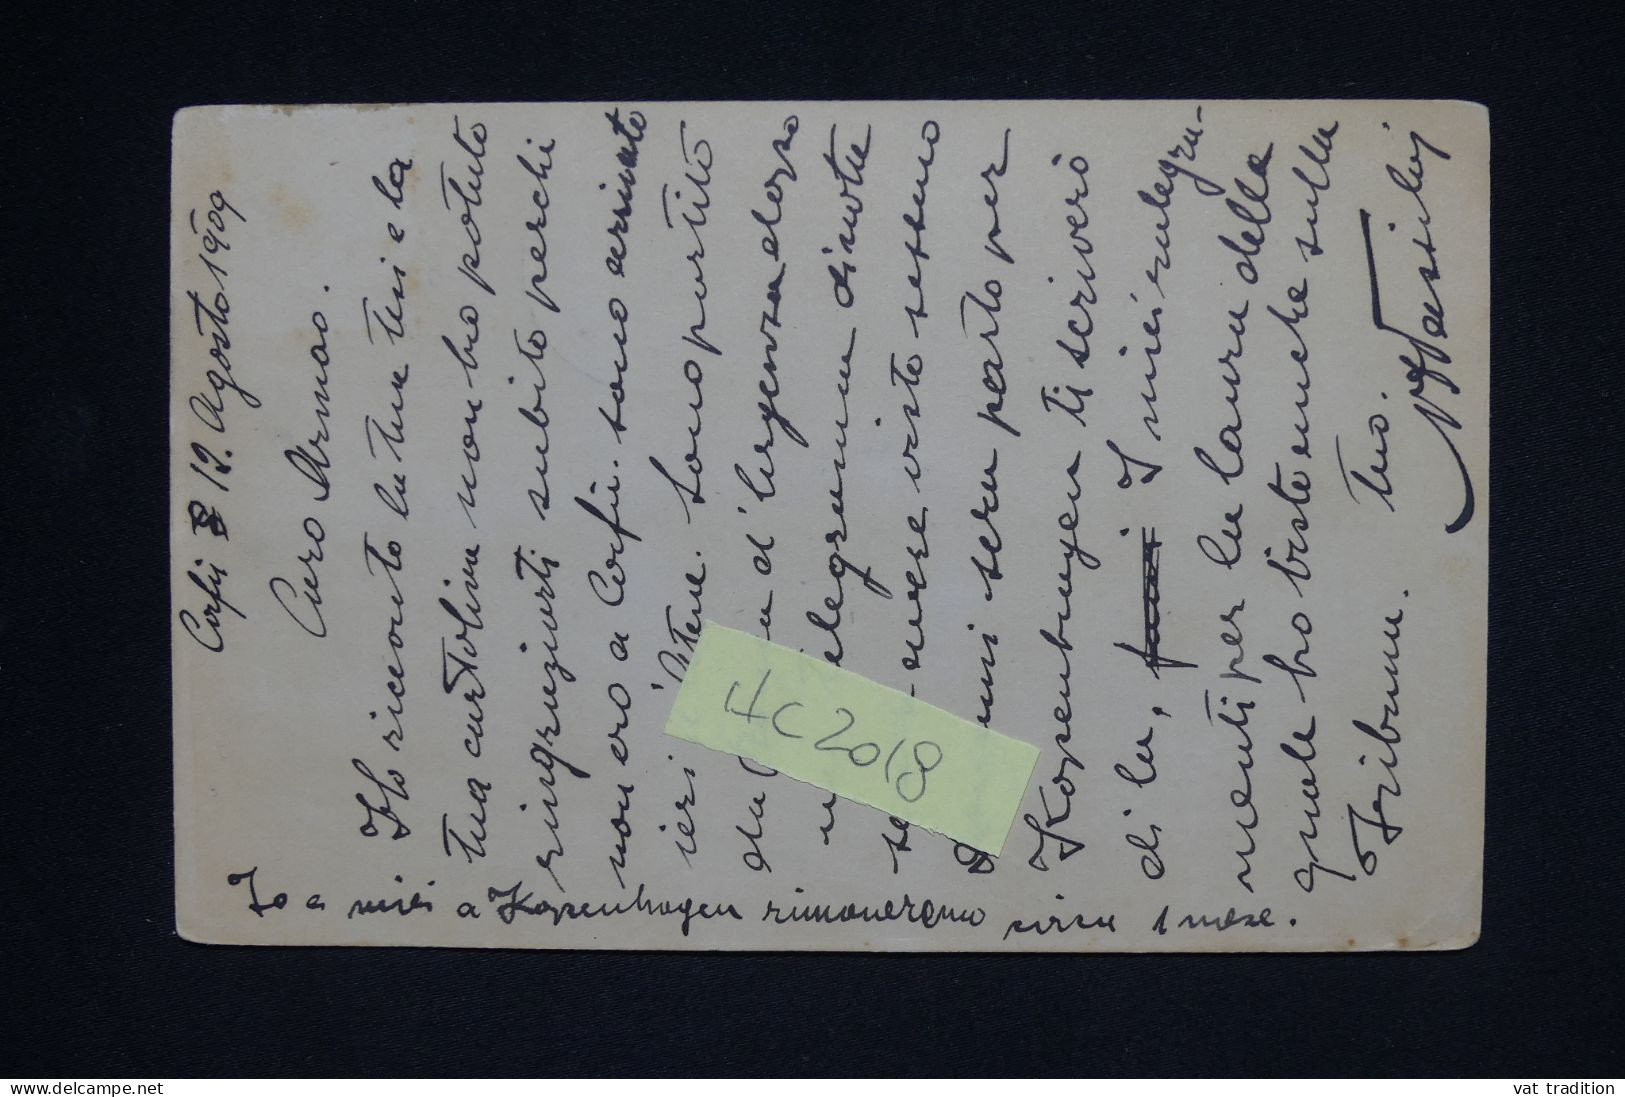 Corfù 12. Agosto 1909
Caro Armao.
Ho ricevuto la tua lett e la
tua cartolina non ho potuto
ringraziarti subito perchè
non ero a Corfù. sono arrivato
ieri Atene. sono partito
da d'urgenza dopo
telegramma di
avere visto
sera parto per
Kopenhagen ti scriverò
di là, I miei rallegra-
menti per la laura della
quale ho visto anche sulla
Tribuna. Tuo.
Io e miei a Kopenhagen rimaneremo circa 1 mese.
HC 2018
www.delcampe.net
vat tradition